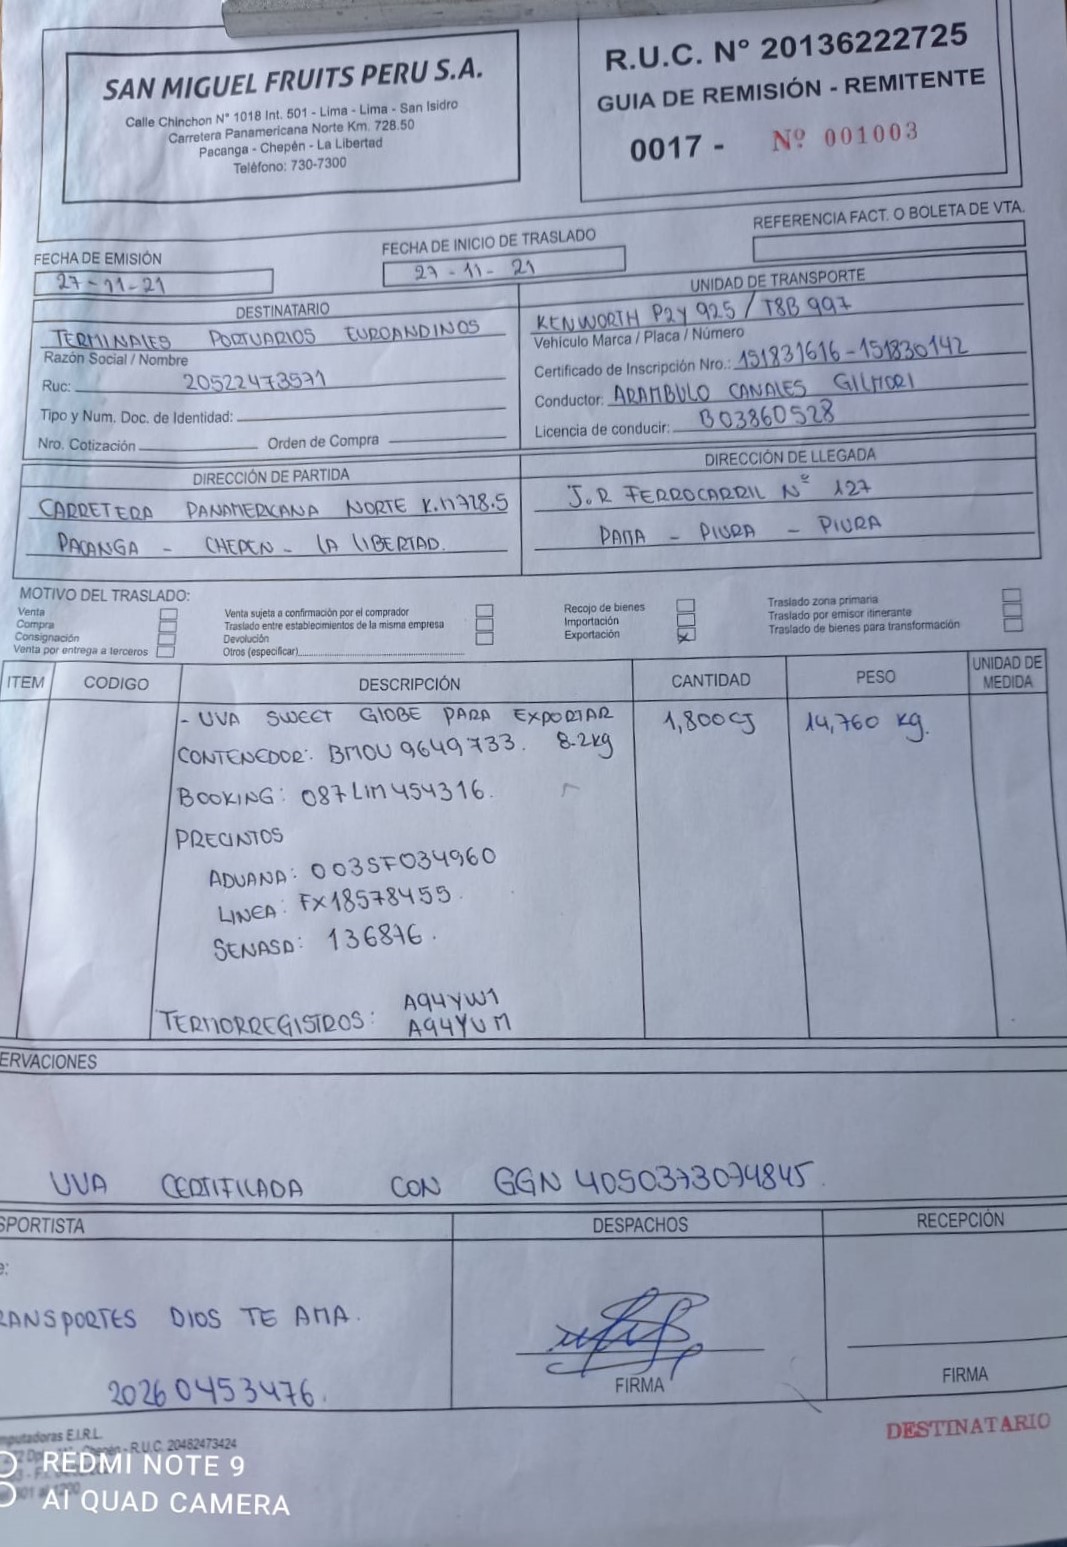 SAN MIGUEL FRUITS PERU S.A.
Calle Chinchon N° 1018 Int. 501 - Lima - Lima - San Isidro
Carretera Panamericana Norte Km. 728.50
Pacanga - Chepén - La Libertad
Teléfono: 730-7300
R.U.C. N° 20136222725
GUIA DE REMISIÓN - REMITENTE
0017 - Nº 001003
FECHA DE EMISIÓN
27-11-21
FECHA DE INICIO DE TRASLADO
27-11-21
REFERENCIA FACT. O BOLETA DE VTA.
DESTINATARIO
TERMINALES PORTUARIOS EUROANDINOS
Razón Social / Nombre
Ruc: 20522473571
Tipo y Num. Doc. de Identidad:
Nro. Cotización Orden de Compra
UNIDAD DE TRANSPORTE
KENWORTH P2Y 925 / T8B 997
Vehículo Marca / Placa / Número
Certificado de Inscripción Nro.: 151831616-151830142
Conductor: ARAMBULO CANALES GILMORI
Licencia de conducir: B03860528
DIRECCIÓN DE PARTIDA
CARRETERA PANAMERICANA NORTE K.M728.5
PACANGA - CHEPEN - LA LIBERTAD.
DIRECCIÓN DE LLEGADA
J.R FERROCARRIL Nº 127
PAITA - PIURA - PIURA
MOTIVO DEL TRASLADO:
Venta
Compra
Consignación
Venta por entrega a terceros
Venta sujeta a confirmación por el comprador
Traslado entre establecimientos de la misma empresa
Devolución
Otros (especificar)
Recojo de bienes
Importación
Exportación X
Traslado zona primaria
Traslado por emisor itinerante
Traslado de bienes para transformación
ITEM CODIGO DESCRIPCIÓN CANTIDAD PESO UNIDAD DE MEDIDA
- UVA SWEET GLOBE PARA EXPORTAR 1,800CJ 14,760 kg.
CONTENEDOR: BMOU 9649733. 8.2kg
BOOKING: 087LIM454316.
PRECINTOS
ADUANA: 003SF034960
LINEA: FX18578455.
SENASA: 136876.
TERMORREGISTROS: A94YW1
A94YUM
ERVACIONES
UVA CERTIFICADA CON GGN 4050373074845.
SPORTISTA
DESPACHOS
RECEPCIÓN
e:
RANSPORTES DIOS TE AMA.
20260453476.
FIRMA
FIRMA
DESTINATARIO
mputadoras E.I.R.L.
Chepén - R.U.C. 20482473424
REDMI NOTE 9
AI QUAD CAMERA